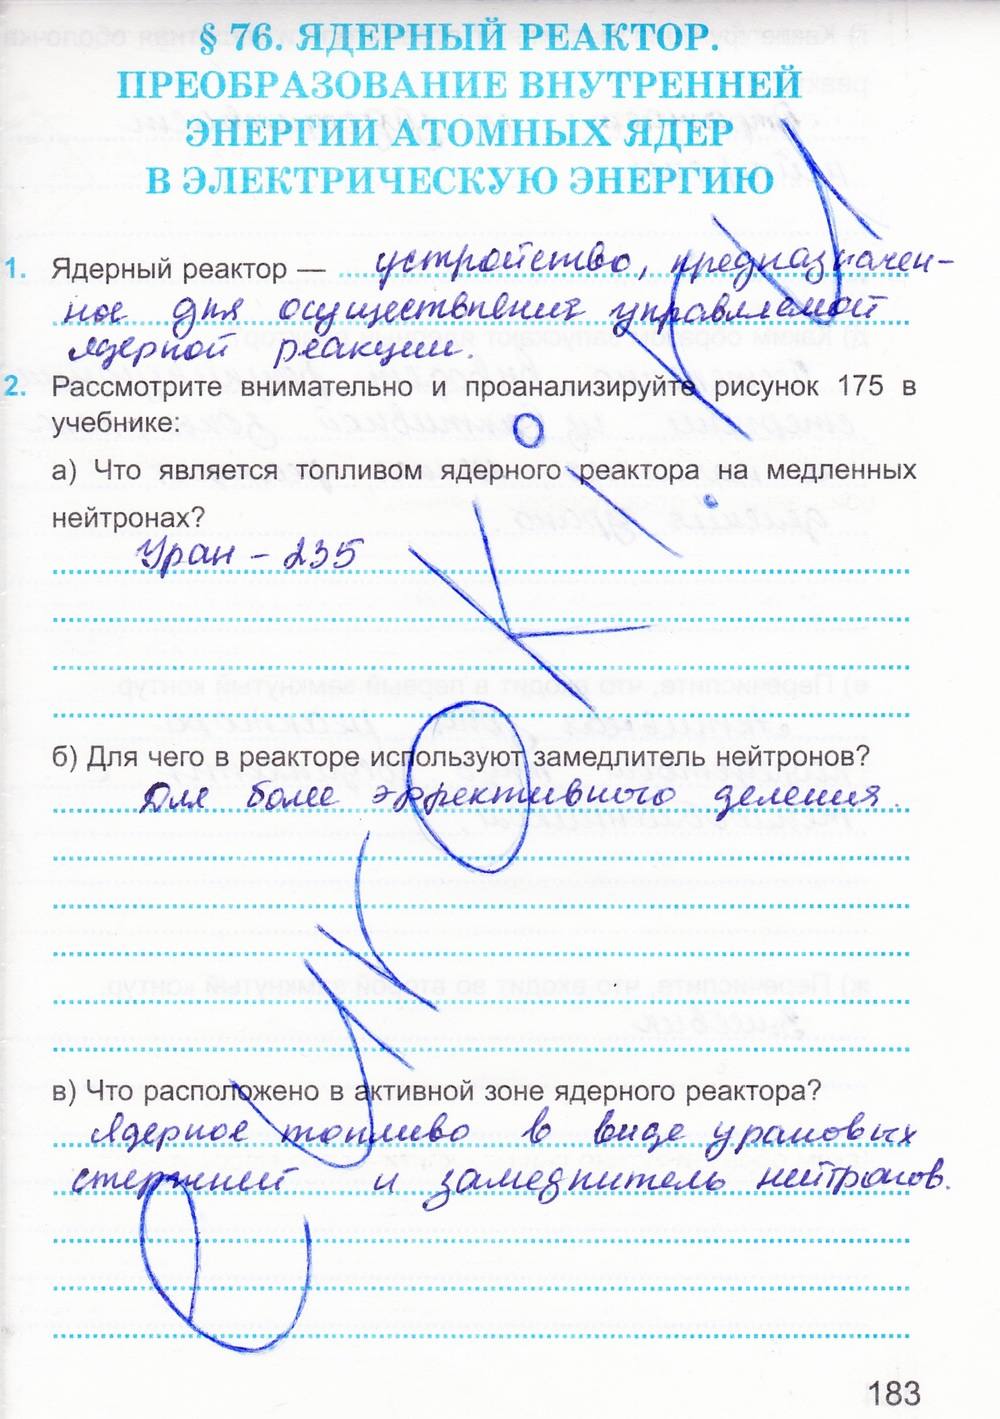 § 76. ЯДЕРНЫЙ РЕАКТОР.
ПРЕОБРАЗОВАНИЕ ВНУТРЕННЕЙ
ЭНЕРГИИ АТОМНЫХ ЯДЕР
В ЭЛЕКТРИЧЕСКУЮ ЭНЕРГИЮ
1. Ядерный реактор — устройство, предназначен-
ное для осуществления управляемой
ядерной реакции.
2. Рассмотрите внимательно и проанализируйте рисунок 175 в
учебнике:
а) Что является топливом ядерного реактора на медленных
нейтронах?
Уран - 235
б) Для чего в реакторе используют замедлитель нейтронов?
Для более эффективного деления.
в) Что расположено в активной зоне ядерного реактора?
Ядерное топливо в виде урановых
стержней и замедлитель нейтронов.
183